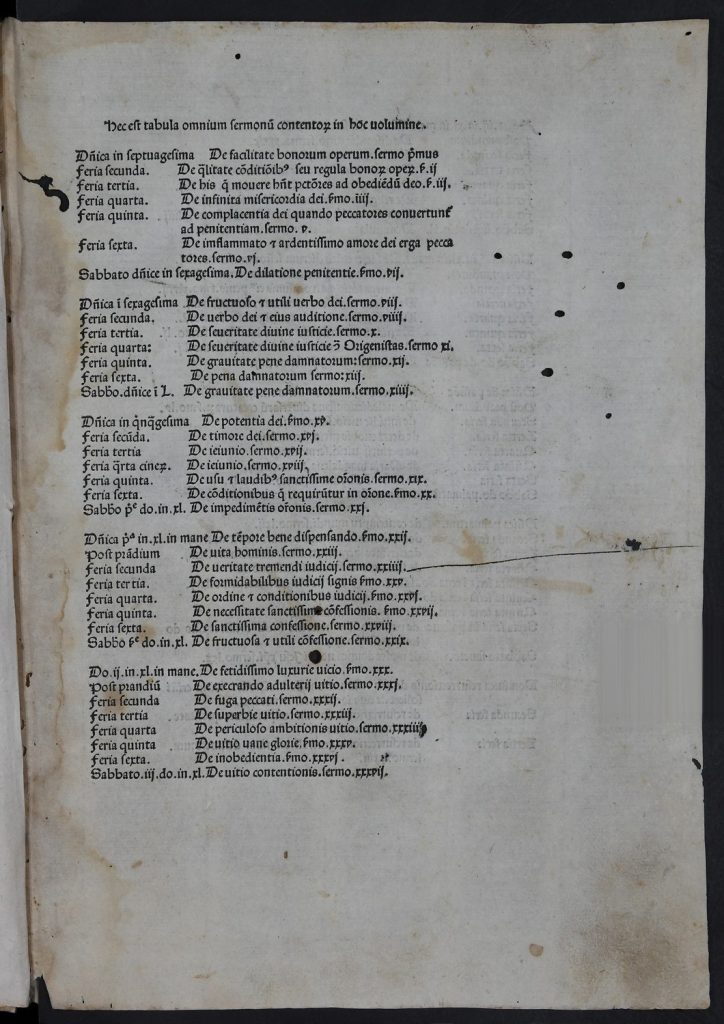 Hec est tabula omnium sermonū contentoꝝ in hoc uolumine.
Dñica in septuagesima De facilitate bonorum operum.sermo p̄mus
Feria secunda. De q̄litate cōditiōibꝰ seu regula bonoꝝ opeꝝ.ẜ.ij
Feria tertia. De his q̄ mouere hñt pctōres ad obediēdū deo.ẜ.iij.
Feria quarta. De infinita misericordia dei.ẜmo.iiij.
Feria quinta. De complacentia dei quando peccatores conuertunt᷑
ad penitentiam.sermo.v.
Feria sexta. De imflammato ⁊ ardentissimo amore dei erga pecca
tores.sermo.vj.
Sabbato dñice in sexagesima.De dilatione penitentie.ẜmo.vij.
Dñica ī sexagesima De fructuoso ⁊ utili uerbo dei.sermo.viij.
Feria secunda. De uerbo dei ⁊ eius auditione.sermo.viiij.
Feria tertia. De seueritate diuine iusticie.sermo.x.
Feria quarta: De seueritate diuine iusticie ɔ̄ Origenistas.sermo xi.
Feria quinta. De grauitate pene damnatorum:sermo.xij.
Feria sexta. De pena damnatorum sermo:xiij.
Sabb̄o.dñice ī L. De grauitate pene damnatorum.sermo.xiiij.
Dñica in q̄nq̄gesima De potentia dei.ẜmo.xv.
Feria secūda. De timore dei.sermo.xvj.
Feria tertia De ieiunio.sermo.xvij.
Feria q̄rta cineꝝ. De ieiunio.sermo.xviij.
Feria quinta. De usu ⁊ laudibꝰ sanctissime or̄onis.sermo.xix.
Feria sexta. De cōditionibus q̄ requirūtur in or̄one.ẜmo.xx.
Sabb̄o p̄ͤ do.in.xl. De impedimētis or̄onis.sermo.xxj.
Dñica p̄ͣ in.xl.in mane De tēpore bene dispensando.ẜmo.xxij.
Post prādium De uita hominis.sermo.xxiij.
Feria secunda De ueritate tremendi iudicij.sermo.xxiiij.
Feria tertia. De formidabilibus iudicij signis ẜmo.xxv.
Feria quarta. De ordine ⁊ conditionibus iudicij.ẜmo.xxvj.
Feria quinta. De necessitate sanctissime cōfessionis. ẜmo.xxvij.
Feria sexta. De sanctissima confessione.sermo.xxviij.
Sabb̄o ẜͤ do.in.xl. De fructuosa ⁊ utili cōfessione.sermo.xxix.
Do.ij.in.xl.in mane.De fetidissimo luxurie uicio.ẜmo.xxx.
Post prandiū De execrando adulterij uitio.sermo.xxxj.
Feria secunda De fuga peccati.sermo.xxxij.
Feria tertia De superbie uitio.sermo.xxxiij.
Feria quarta De periculoso ambitionis uitio.sermo.xxxiiij
Feria quinta De uitio uane glorie.ẜmo.xxxv.
Feria sexta. De inobedientia.ẜmo.xxxvj.
Sabbato.iij.do.in.xl.De uitio contentionis.sermo.xxxvij.